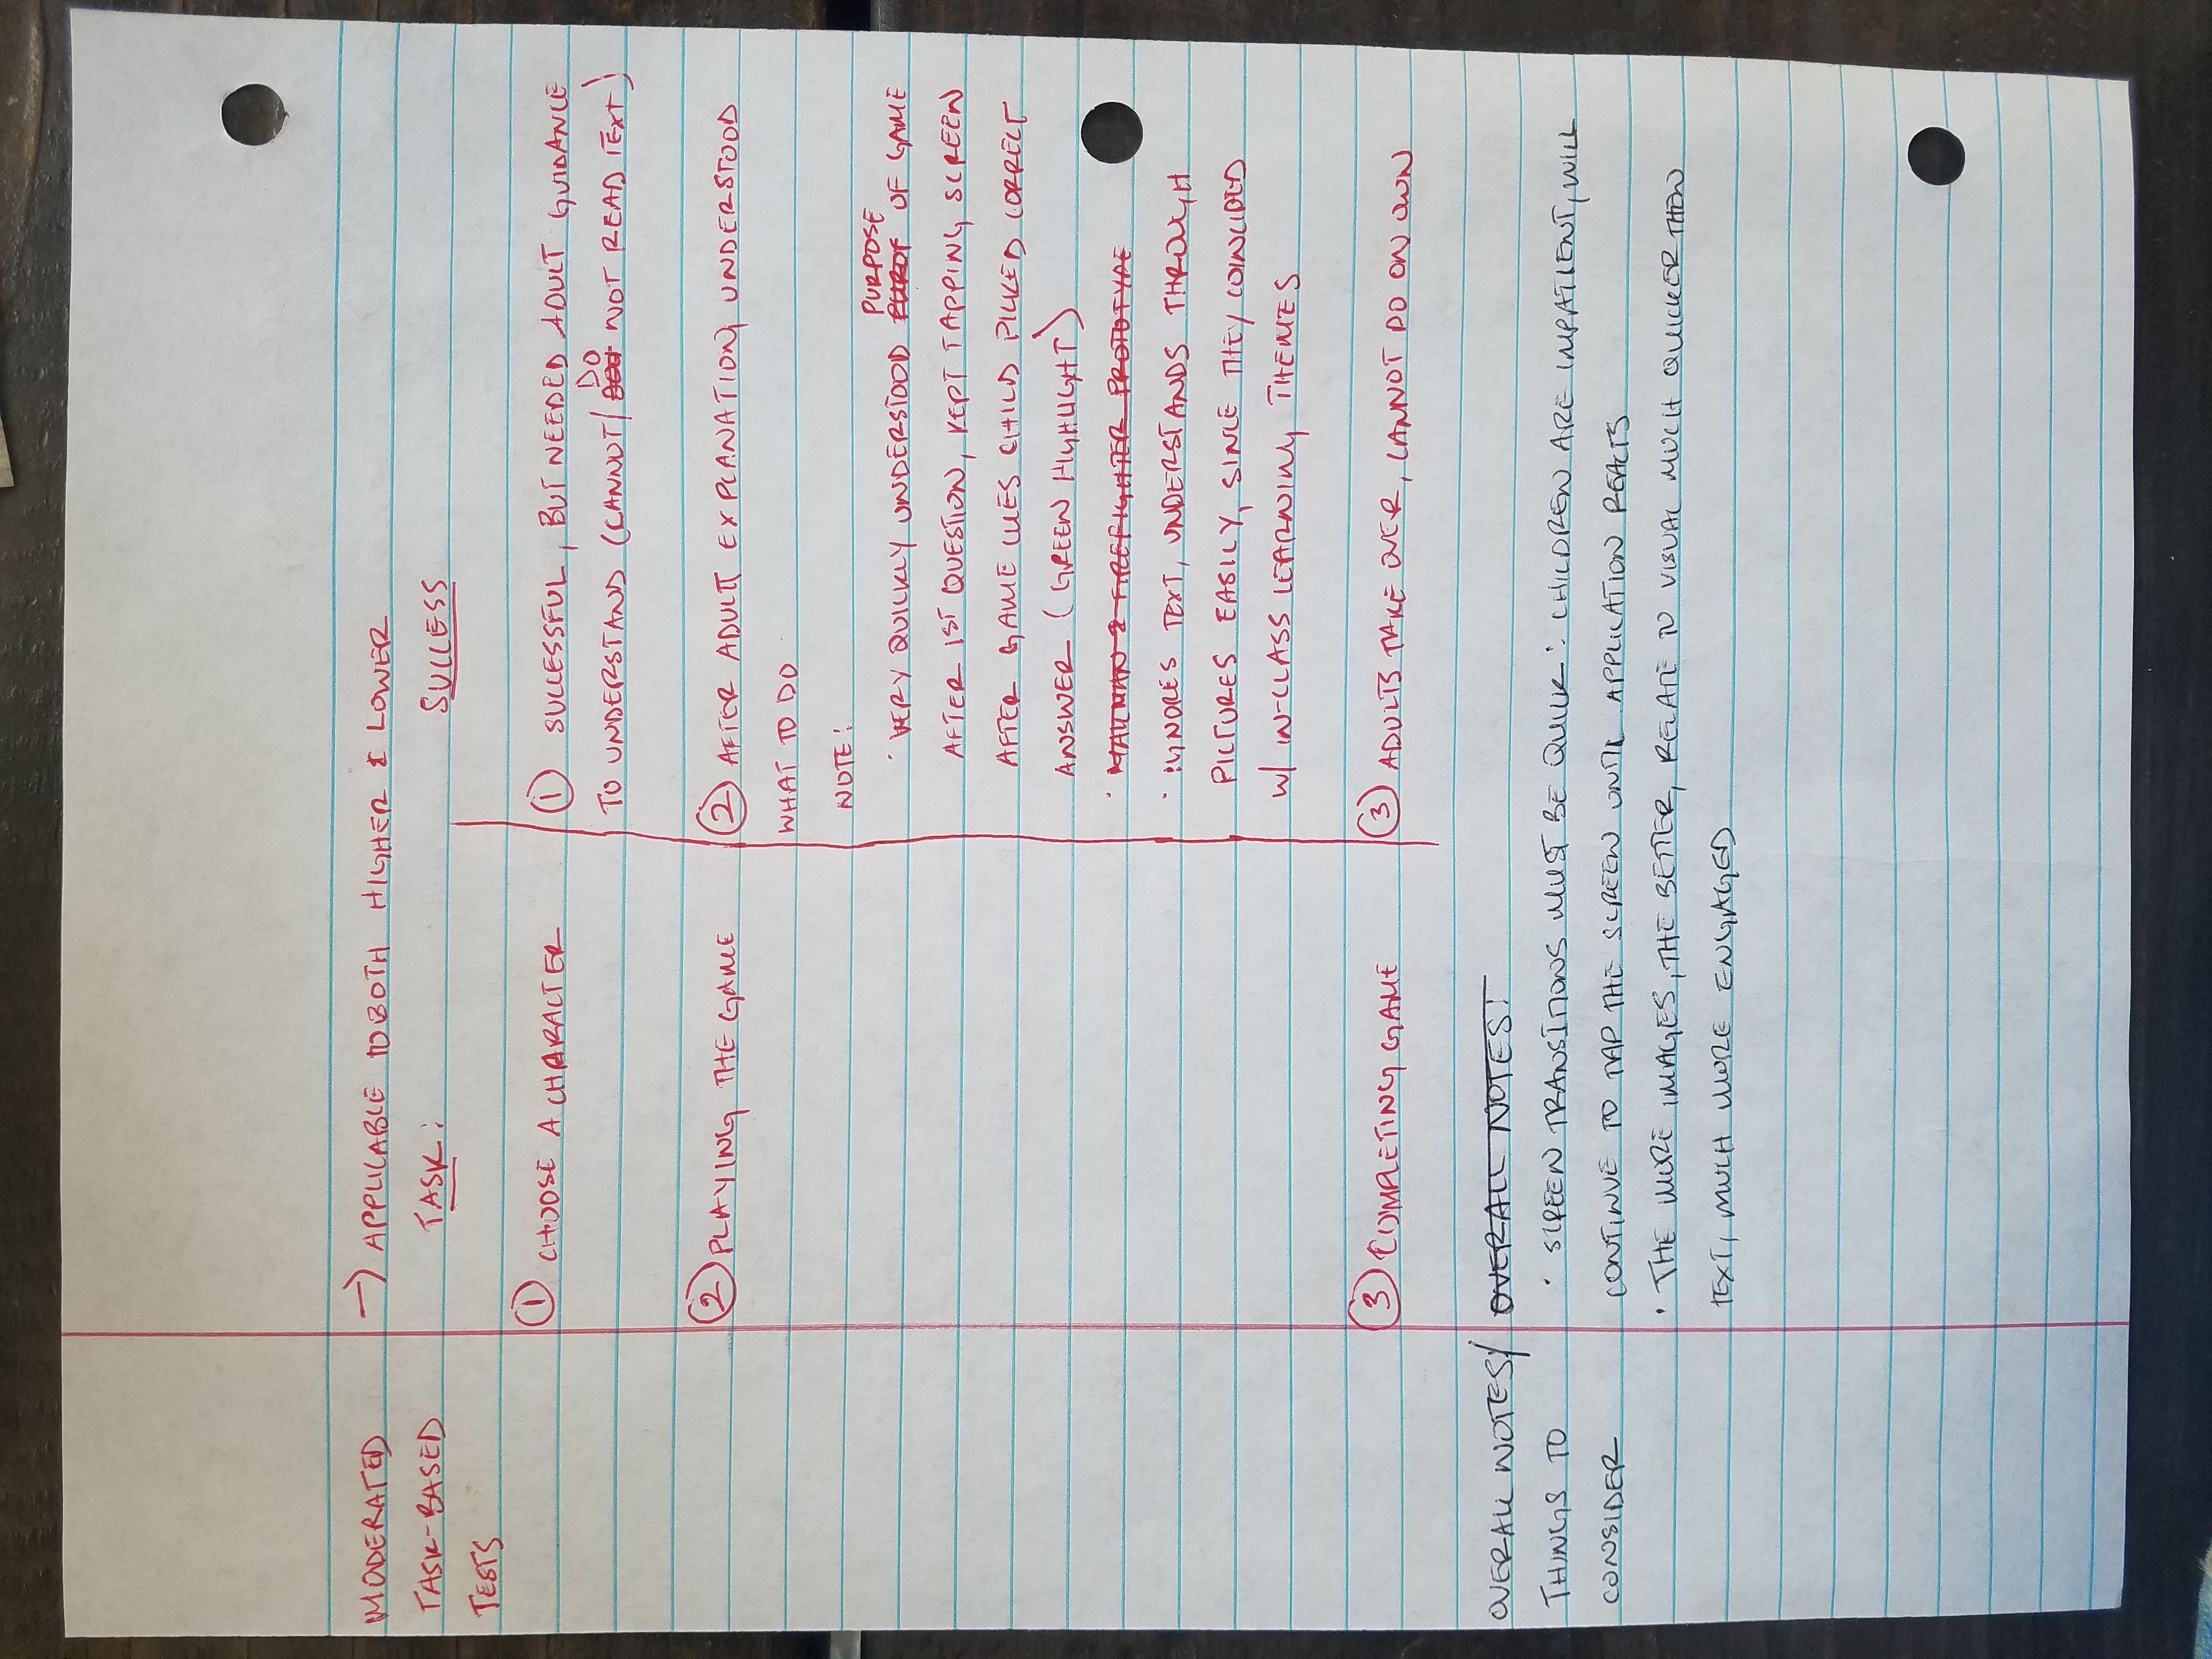 MODERATED → APPLICABLE TO BOTH HIGHER & LOWER
TASK-BASED TASK: SUCCESS
TESTS
① CHOOSE A CHARACTER
① SUCCESSFUL, BUT NEEDED ADULT GUIDANCE
DO
TO UNDERSTAND (CANNOT/ NOT READ TEXT)
② PLAYING THE GAME
② AFTER ADULT EXPLANATION, UNDERSTOOD
WHAT TO DO
NOTE:
PURPOSE
· VERY QUICKLY UNDERSTOOD OF GAME
AFTER 1ST QUESTION, KEPT TAPPING SCREEN
AFTER GAME CUES CHILD PICKED CORRECT
ANSWER (GREEN HIGHLIGHT)
· MAILMAN & FIREFIGHTER PROTOTYPE
· IGNORES TEXT, UNDERSTANDS THROUGH
PICTURES EASILY, SINCE THEY COINCIDED
W/ IN-CLASS LEARNING THEMES
③ COMPLETING GAME
③ ADULTS TAKE OVER, CANNOT DO ON OWN
OVERALL NOTES/ OVERALL NOTES:
THINGS TO · SCREEN TRANSITIONS MUST BE QUICK: CHILDREN ARE IMPATIENT, WILL
CONSIDER CONTINUE TO TAP THE SCREEN UNTIL APPLICATION REACTS
· THE MORE IMAGES, THE BETTER, RELATE TO VISUAL MUCH QUICKER THEN
TEXT, MUCH MORE ENGAGED